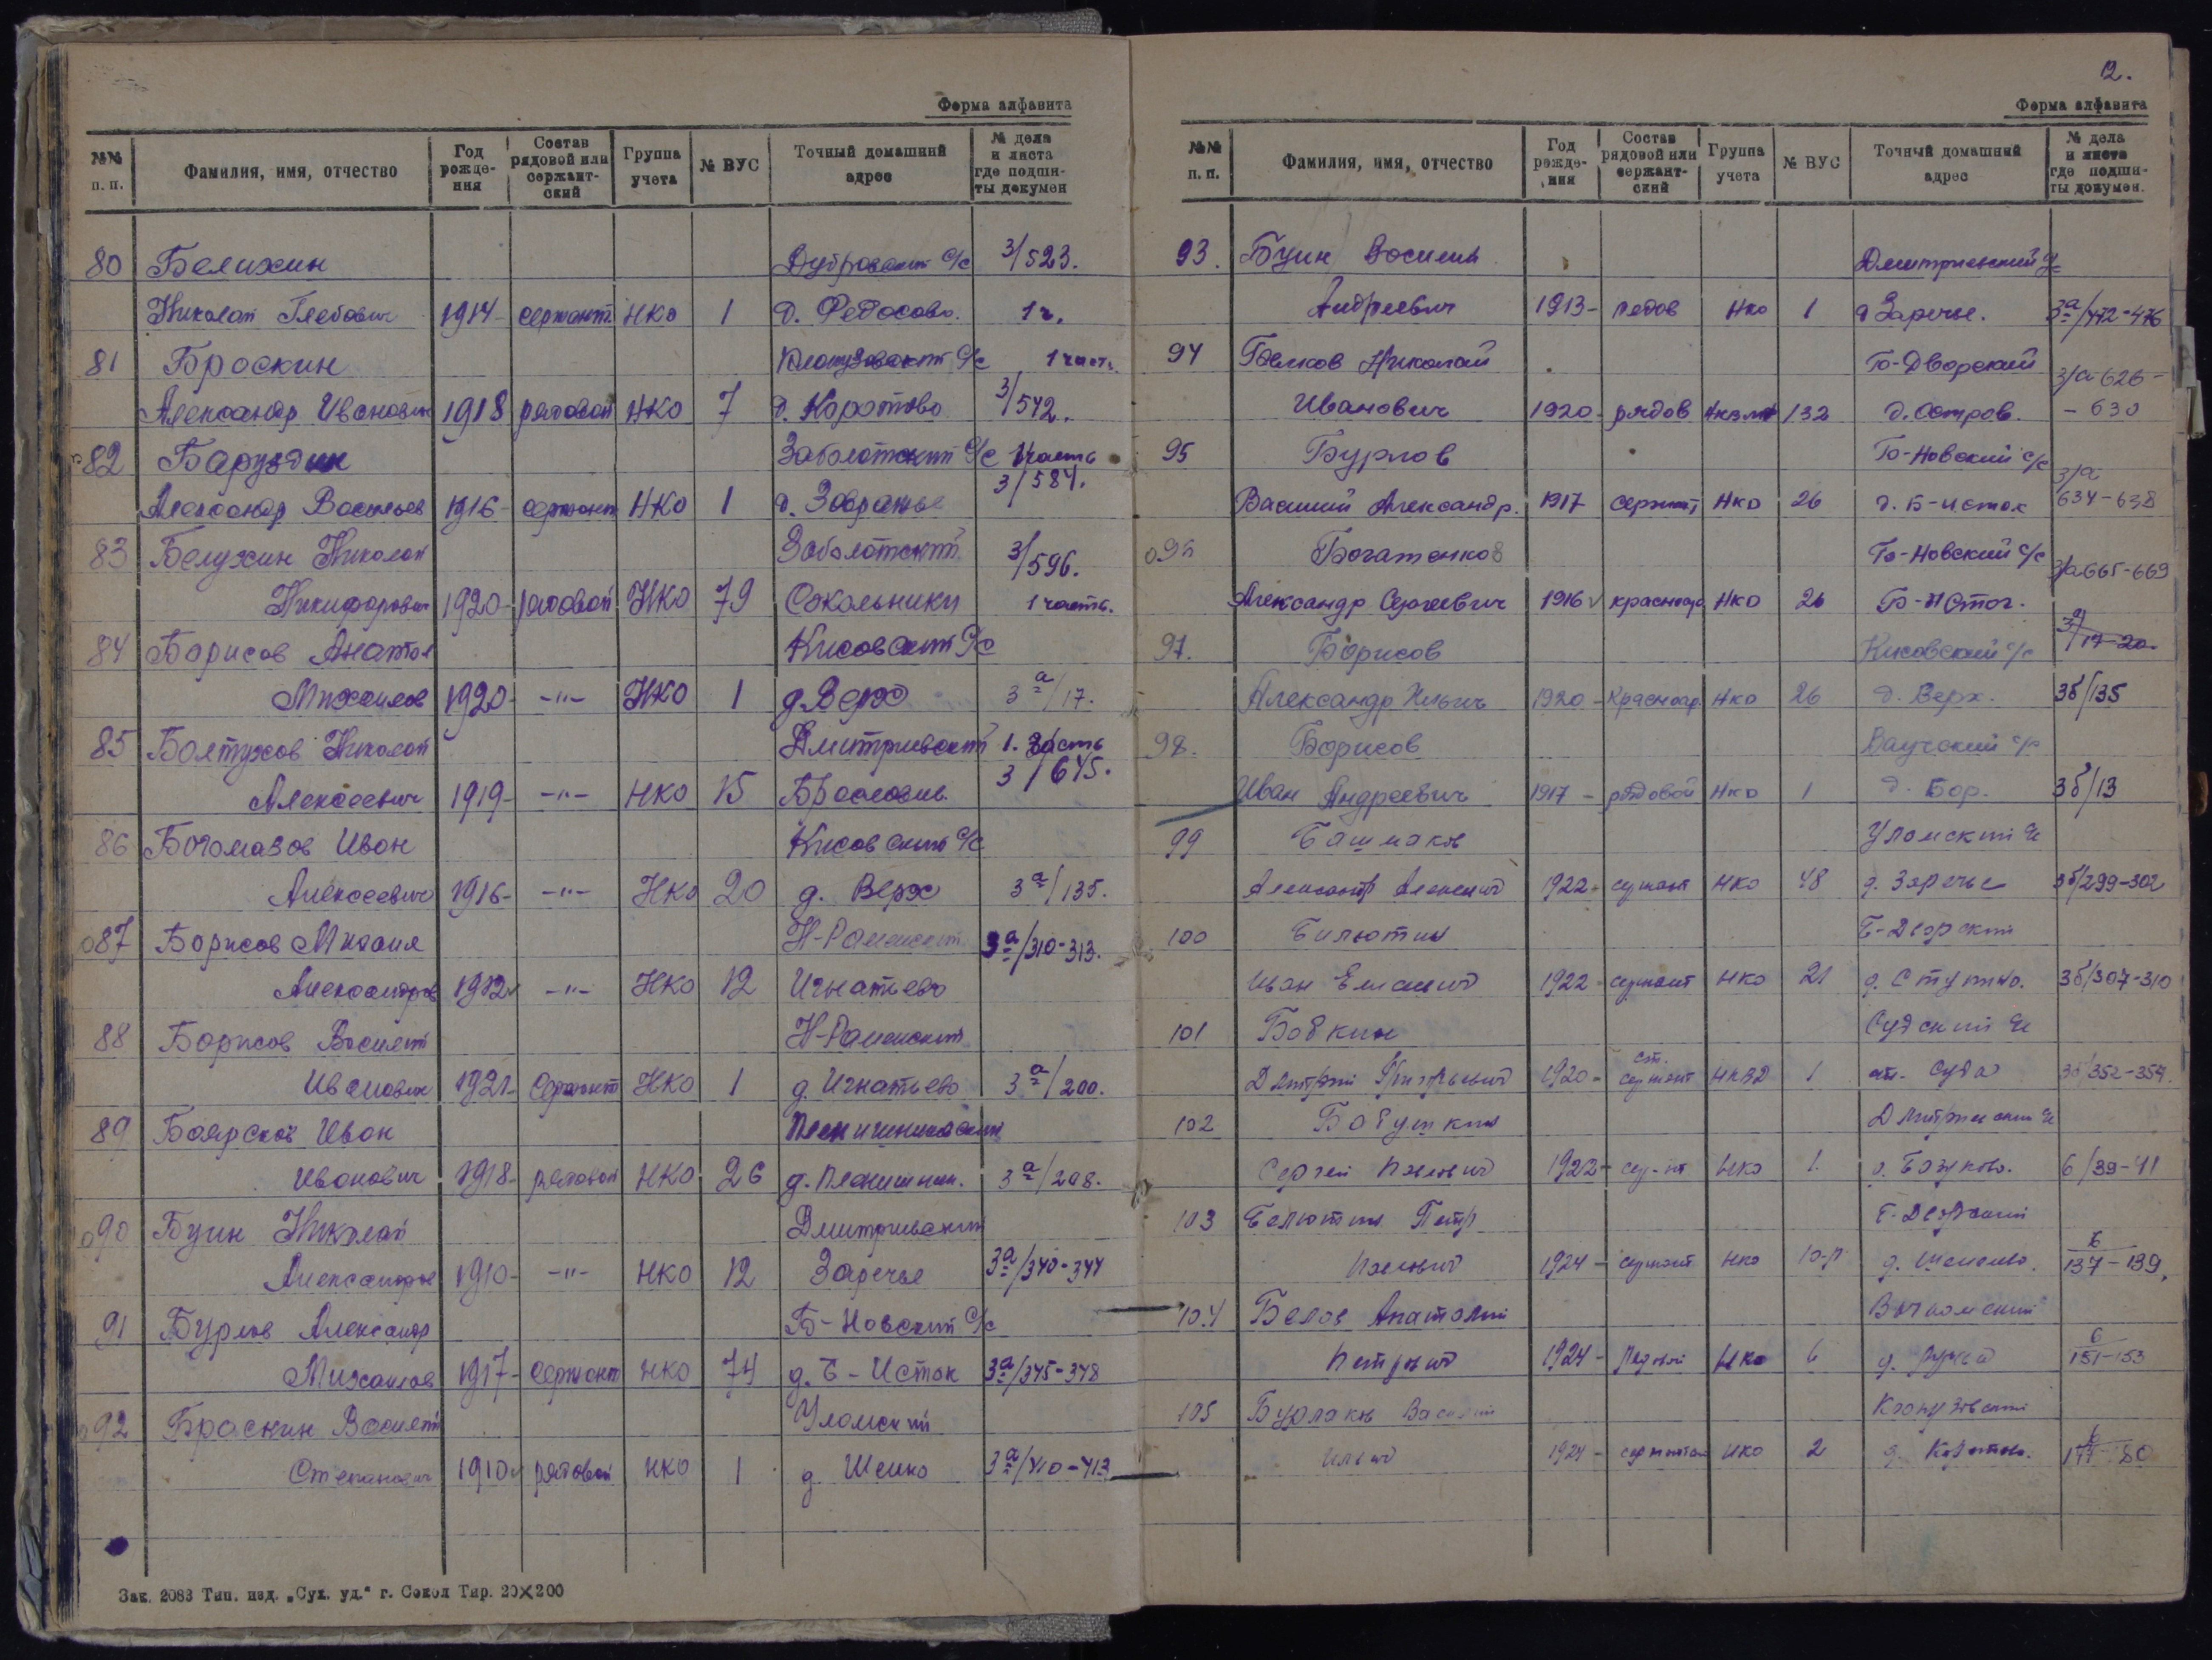 Форма алфавита
№№ п. п. Фамилия, имя, отчество Год рожде-ния Состав рядовой или сержант-ский Группа учета № ВУС Точный домашний адрес № дела и листа где подши-ты докумен
80 Белихин Дубровский с/с 3/523.
Николай Глебович 1914 сержант НКО 1 д. Федосово. 1 ч.
81 Броскин с/с 1 часть
Александр Иванович 1918 рядовой НКО 7 д. Коротово 3/542.
82 Баруздин Заболотский с/с 1 часть
Александр Васильев 1916 сержант НКО 1 д. Завражье 3/584.
83 Белухин Николай Заболотский 3/596.
Никифорович 1920 рядовой НКО 79 Сокольники 1 часть.
84 Борисов Анатол Кисовский с/с
Михайлов 1920 -"- НКО 1 д. Верх 3а/17.
85 Болтухов Николай Дмитриевский 1. часть
Алексеевич 1919 -"- НКО 15 3/645.
86 Богомазов Иван Кисовский с/с
Алексеевич 1916 -"- НКО 20 д. Верх 3а/135.
87 Борисов Михаил Н-Раменский 3а/310-313.
Александров 1912 -"- НКО 12 Игнатьево
88 Борисов Василий Н-Раменский
Иванович 1921 Сержант НКО 1 д. Игнатьево 3а/200.
89 Боярской Иван
Иванович 1918 рядовой НКО 26 3а/208.
90 Буин Николай Дмитриевский
Александров 1910 -"- НКО 12 Заречье 3а/340-344
91 Бурлов Александр Б-Новский с/с
Михайлов 1917 Сержант НКО 74 д. Б-Исток 3а/345-348
92 Броскин Василий Уломский
Степанович 1910 рядовой НКО 1 д. Шейко 3а/410-413
Зак. 2083 Тип. изд. „Сух. уд.“ г. Сокол Тир. 20×200
12.
Форма алфавита
№№ п. п. Фамилия, имя, отчество Год рожде-ния Состав рядовой или сержант-ский Группа учета № ВУС Точный домашний адрес № дела и листа где подши-ты докумен.
93. Буин Василий Дмитриевский с/с
Андреевич 1913 рядов НКО 1 д Заречье. 3а/472-476
94 Белков Николай Б-Дворский 3/а-626-
Иванович 1920 рядов 132 д. Остров. -630
95 Бурлов Б-Новский с/с 3/а
Василий Александр. 1917 Сержант НКО 26 д. Б-исток 634-638
96 Богатенков Б-Новский с/с 3/а 665-669
Александр Сергеевич 1916 красноар НКО 26 Б-Исток.
97. Борисов Кисовский с/с 3а/17-20
Александр Ильич 1920 Красноар. НКО 26 д. Верх. 3б/135
98. Борисов с/с
Иван Андреевич 1917 рядовой НКО 1 д. Бор. 3б/13
99 Башмаков Уломский с/с
Александр Алексеевич 1922 сержант НКО 48 д. Заречье 3б/299-302
100 Билютин Б-Дворский
Иван 1922 сержант НКО 21 д. Ступино. 3б/307-310
101 Бобкин Судский с/с
Дмитрий Григорьевич 1920 ст. сержант НКВД 1 ст. Суда 3б/352-354.
102 Бобушкин Дмитриевский с/с
Сергей Павлович 1922 сер-нт НКО 1. 6/39-41
103 Белютин Петр Б-Дворский
Павлович 1924 сержант НКО 10-Р 6/137-139,
104 Белов Анатолий
Петрович 1924 Рядовой НКО 6 д. Ручьи 6/151-153
105 Бурлаков Василий
Ильич 1924 НКО 2 д. Коротово. 6/177-180